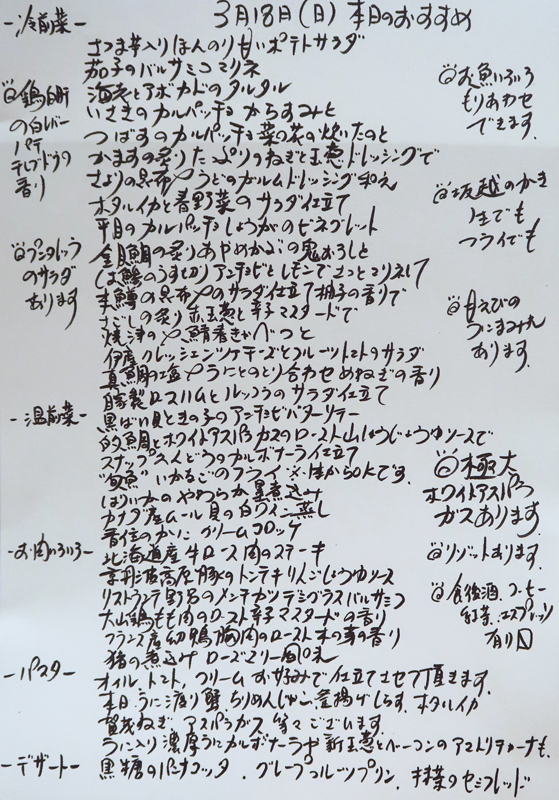 3月18日(日) 本日のおすすめ
-冷前菜-
さつま芋入りほんのり甘いポテトサラダ
茄子のバルサミコマリネ
海老とアボカドのタルタル
いさきのカルパッチョ からすみと
つばすのカルパッチョ 菜の花の焼いたのと
かますの炙り たっぷりのねぎと玉葱ドレッシングで
さよりの昆布〆 うどのガルムドレッシング和え
ホタルイカと春野菜のサラダ仕立て
平目のカルパッチョ しょうがのビネグレット
金目鯛の炙り あやめかぶの鬼おろしと
は鰺のうす切り アンチョビとレモンでさっとマリネして
本鱒の昆布〆のサラダ仕立て 柚子の香りで
さごしの炙り 赤玉葱と辛子マスタードで
焼津の〆鯖 香きゃべつと
伊産 クレッシェンツァチーズとフルーツトマトのサラダ
真鯛の塩〆 うにとのとり合わせ めねぎの香り
自家製ロースハムとルッコラのサラダ仕立て
◎鶏白肝
の白レバー
パテ
テレブドウの
香り
◎プンタレッラ
のサラダ
あります
◎お魚いろいろ
もりあわせ
できます。
◎坂越のかき
生でも
フライでも
◎甘えびの
つまみれ
あります。
-温前菜-
黒ばい貝ときの子のアンチョビバターソテー
的鯛とホワイトアスパラガスのロースト 山しょうじょうゆソースで
スナップえんどうのカルボナーラ仕立て
"旬魚" いかなごのフライ ※1ヶからOKです。
ほたるいかのやわらか 墨煮込み
カナダ産ムール貝の白ワイン蒸し
香住のかに クリームコロッケ
-お肉いろいろ-
北海道産 牛ロース肉のステーキ
京丹波高原豚のトンテキ りんごしょうゆソース
リストランテ野呂のメンチカツ デミグラスバルサミコ
大山鶏もも肉のロースト 辛子マスタードの香り
フランス産 幼鴨胸肉のロースト 木の実の香り
猪の煮込み ローズマリー風味
◎極太
ホワイトアスパラ
ガスあります。
◎リゾットあります。
◎食後酒、コーヒー
紅茶、エスプレッソ
有り〼
-パスタ-
オイル、トマト、クリーム お好みで仕立てさせて頂きます。
本日、うに、渡り蟹、ちりめんじゃこ、釜揚げしらす、ホタルイカ
賀茂ねぎ、アスパラガス 等々ございます。
うに入り濃厚うにカルボナーラや 新玉葱とベーコンのアマトリチャーナも、
-デザート-
黒糖のパンナコッタ、グレープフルーツプリン、抹茶のセミフレッド